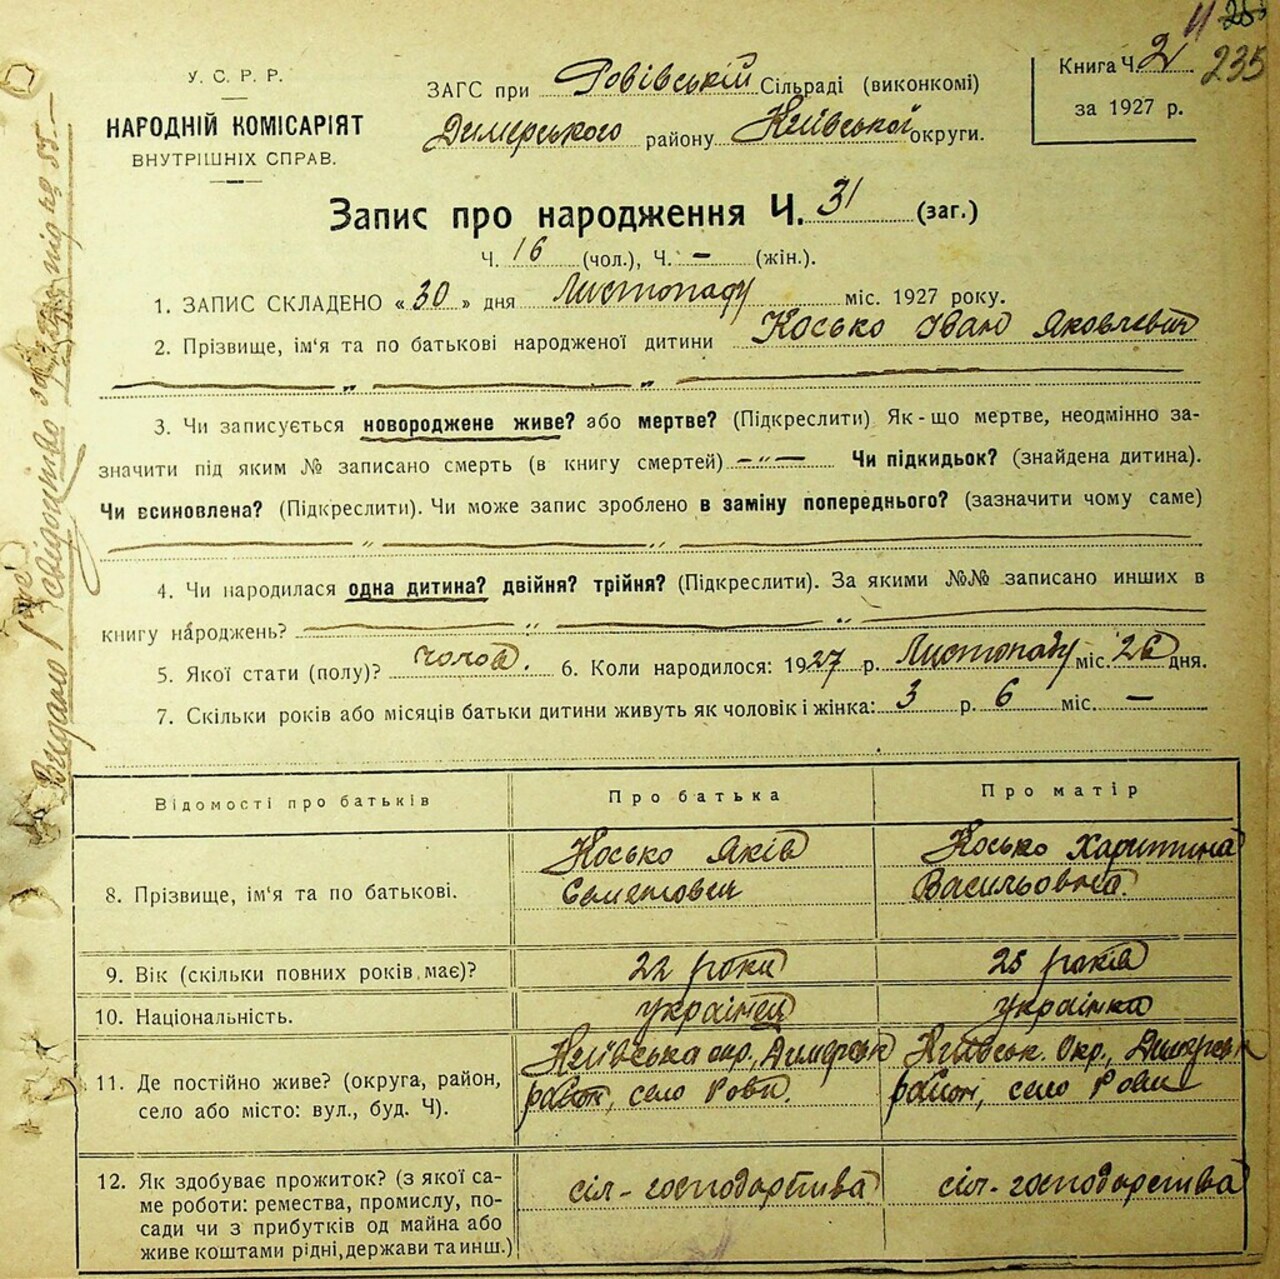 235
У. С. Р. Р.
НАРОДНІЙ КОМІСАРІЯТ
ВНУТРІШНІХ СПРАВ.
ЗАГС при Ровівській Сільраді (виконкомі)
Димерського району Київської округи.
Книга Ч. 2
за 1927 р.
Запис про народження Ч. 31 (заг.)
Ч. 16 (чол.), Ч. - (жін.).
1. ЗАПИС СКЛАДЕНО «30» дня Листопаду міс. 1927 року.
2. Прізвище, ім'я та по батькові народженої дитини Косько Іван Яковлевич
3. Чи записується новороджене живе? або мертве? (Підкреслити) Як-що мертве, неодмінно за-
значити під яким № записано смерть (в книгу смертей) —„— Чи підкидьок? (знайдена дитина).
Чи всиновлена? (Підкреслити). Чи може запис зроблено в заміну попереднього? (зазначити чому саме)
4. Чи народилася одна дитина? двійня? трійня? (Підкреслити). За якими №№ записано инших в
книгу народжень?
5. Якої стати (полу)? чолов. 6. Коли народилося: 1927 р. Листопаду міс. 26 дня.
7. Скільки років або місяців батьки дитини живуть як чоловік і жінка: 3 р. 6 міс. —
Відомості про батьків
Про батька
Про матір
8. Прізвище, ім'я та по батькові.
Косько Яків
Семенович
Косько Харитина
Васильовна.
9. Вік (скільки повних років має)?
22 роки
25 років
10. Національність.
українец
українка
11. Де постійно живе? (округа, район,
село або місто: вул., буд. Ч).
Київська окр., Димерськ
район, село Рови.
Київськ. Окр., Димерськ
район, село Рови
12. Як здобуває прожиток? (з якої са-
ме роботи: ремества, промислу, по-
сади чи з прибутків од майна або
живе коштами рідні, держави та инш.)
сіл-господарства
сіл-господарства
Видано свідоцтво за під № 85.—